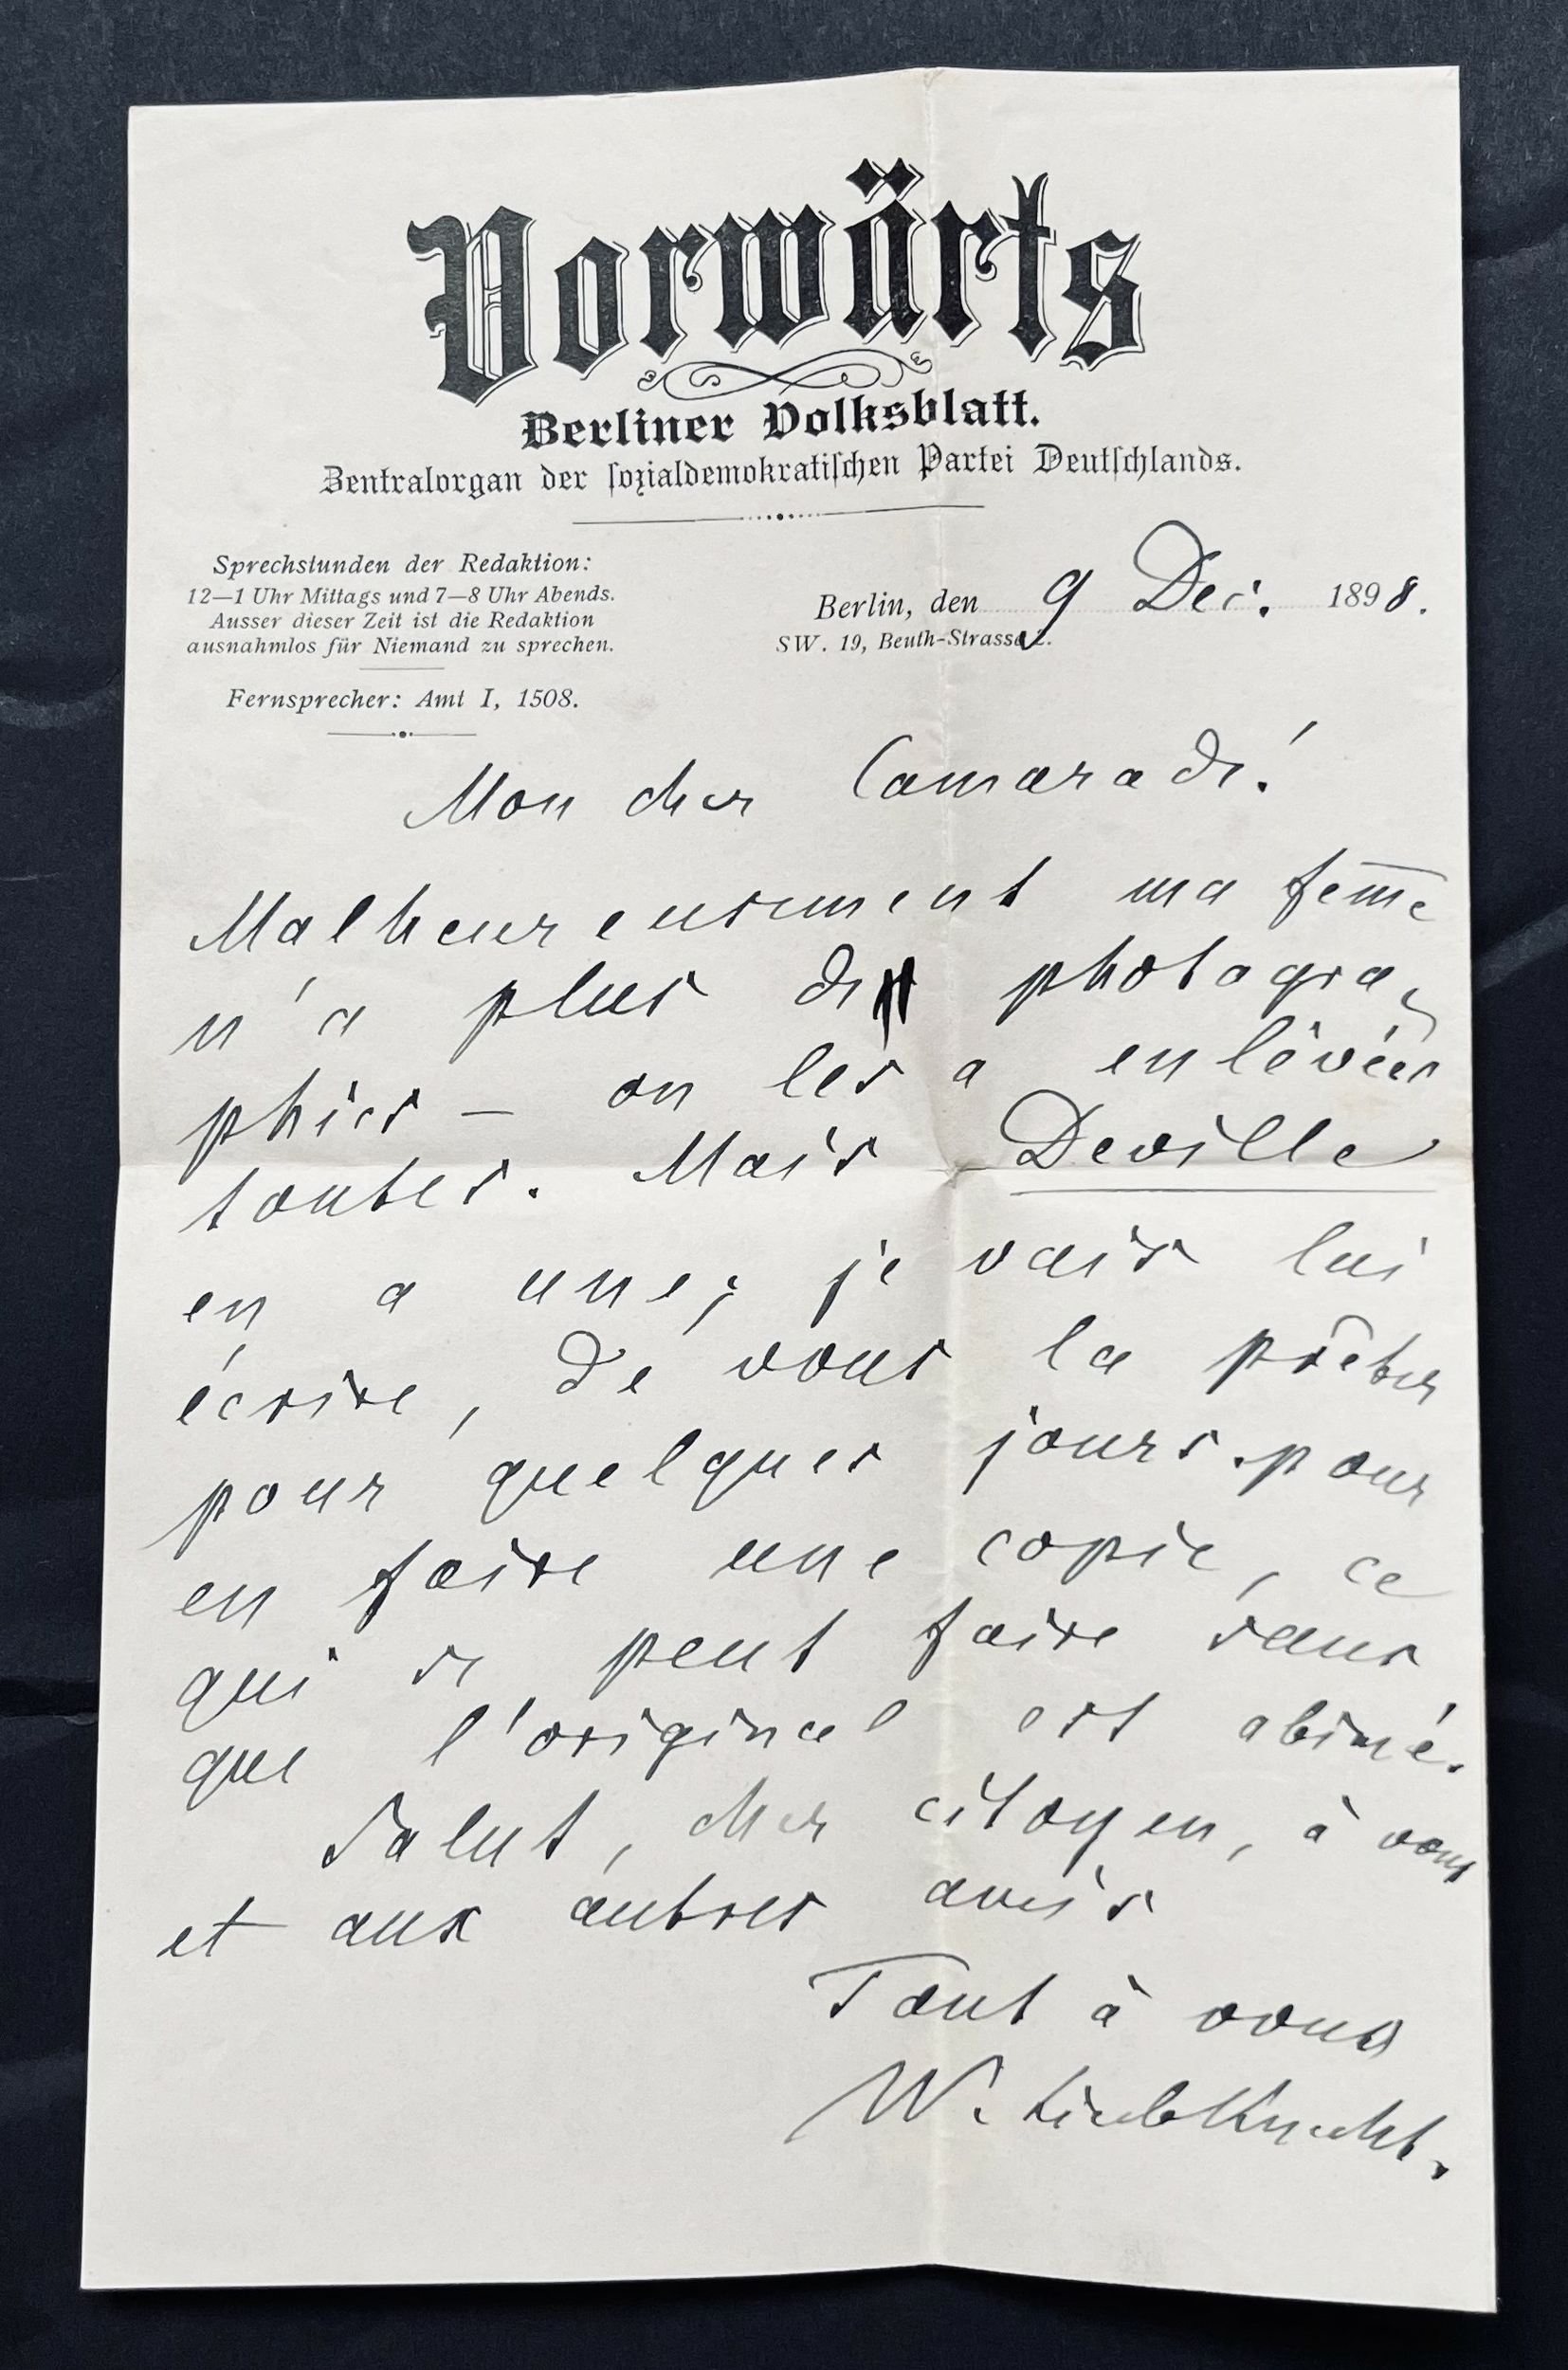 Vorwärts
Berliner Volksblatt.
Zentralorgan der sozialdemokratischen Partei Deutschlands.
Sprechstunden der Redaktion:
12—1 Uhr Mittags und 7—8 Uhr Abends.
Ausser dieser Zeit ist die Redaktion
ausnahmlos für Niemand zu sprechen.
Fernsprecher: Amt I, 1508.
Berlin, den 9 Dec. 1898.
SW. 19, Beuth-Strasse 2.
Mon cher Camarade!
Malheureusement ma fem̅e
n'a plus de photogra-
phies — on les a enlévées
toutes. Mais Deville
en a une; je vais lui
écrire, de vous la prêter
pour quelques jours pour
en faire une copie, ce
qui se peut faire sans
que l'original est abimé.
Salut, cher citoyen, à vous
et aux autres amis
Tout à vous
W. Liebknecht.